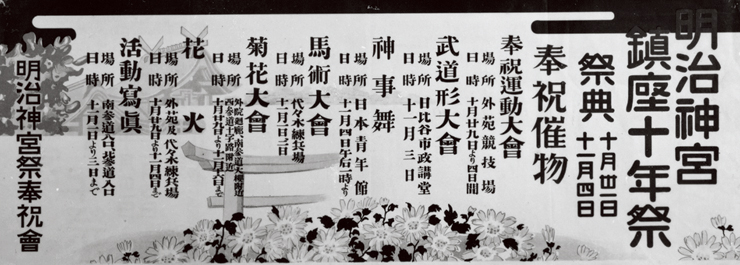 明治神宮
鎮座十年祭
祭典 十月廿二日
十一月四日
奉祝催物
奉祝運動大會
場所 外苑競技場
日時 十月廿九日より四日間
武道形大會
場所 日比谷市政講堂
日時 十一月三日
神事舞
場所 日本青年館
日時 十一月四日午后一時より
馬術大會
場所 代々木練兵場
日時 十一月二日三日
菊花大會
場所
日時
花火
場所 外苑及代々木練兵場
日時 十月廿九日より十一月四日まで
活動寫眞
場所 南参道入口、北参道入口
日時 十一月一日より三日まで
明治神宮祭奉祝會